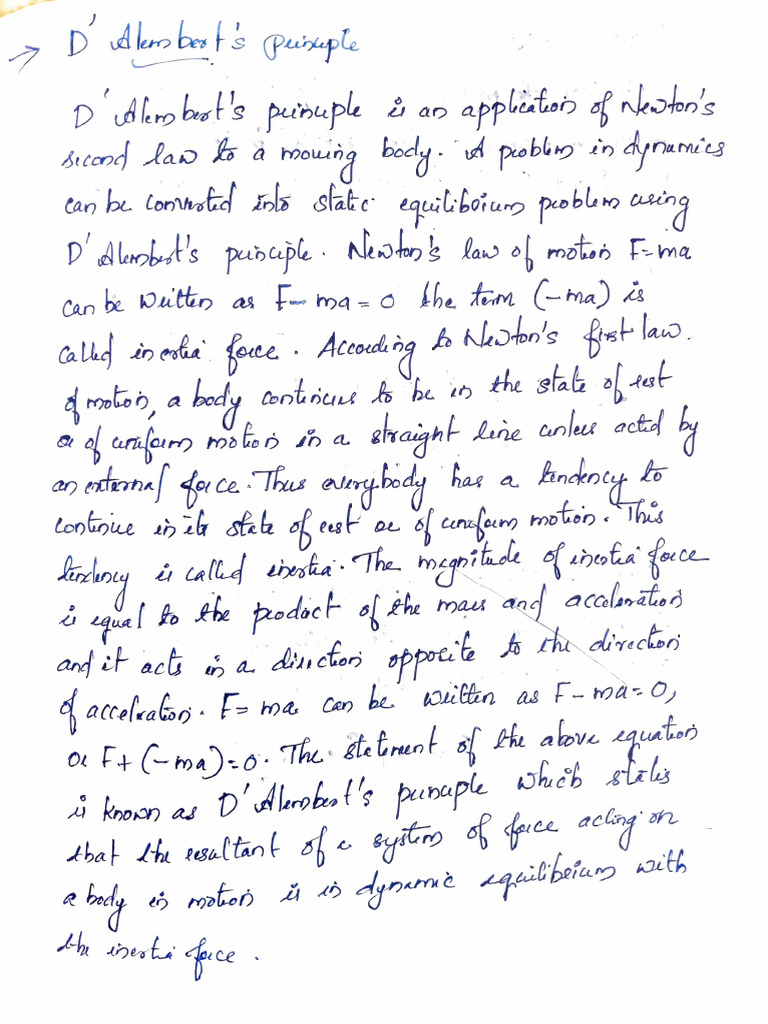 → D'Alembert's principle
D'Alembert's principle is an application of Newton's
second law to a moving body. A problem in dynamics
can be converted into static equilibrium problem using
D'Alembert's principle. Newton's law of motion F=ma
can be written as F-ma=0 the term (-ma) is
called inertia force. According to Newton's first law.
of motion, a body continues to be in the state of rest
or of uniform motion in a straight line unless acted by
an external force. Thus everybody has a tendency to
continue in its state of rest or of uniform motion. This
tendency is called inertia. The magnitude of inertia force
is equal to the product of the mass and acceleration
and it acts in a direction opposite to the direction
of acceleration. F=ma can be written as F-ma=0,
or F+(-ma)=0. The statement of the above equation
is known as D'Alembert's principle which states
that the resultant of a system of force acting on
a body in motion is in dynamic equilibrium with
the inertia force.